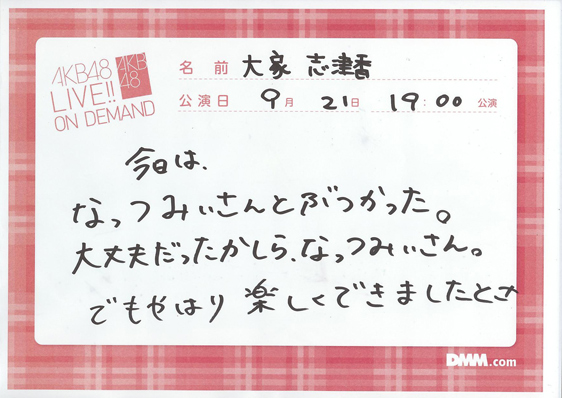 AKB48
LIVE!!
ON DEMAND
AKB
48
名前 大家 志津香
公演日 9月 21日 19:00 公演
今日は、
なっつみぃさんとぶつかった。
大丈夫だったかしら、なっつみぃさん。
でもやはり 楽しくできましたとさ
DMM.com